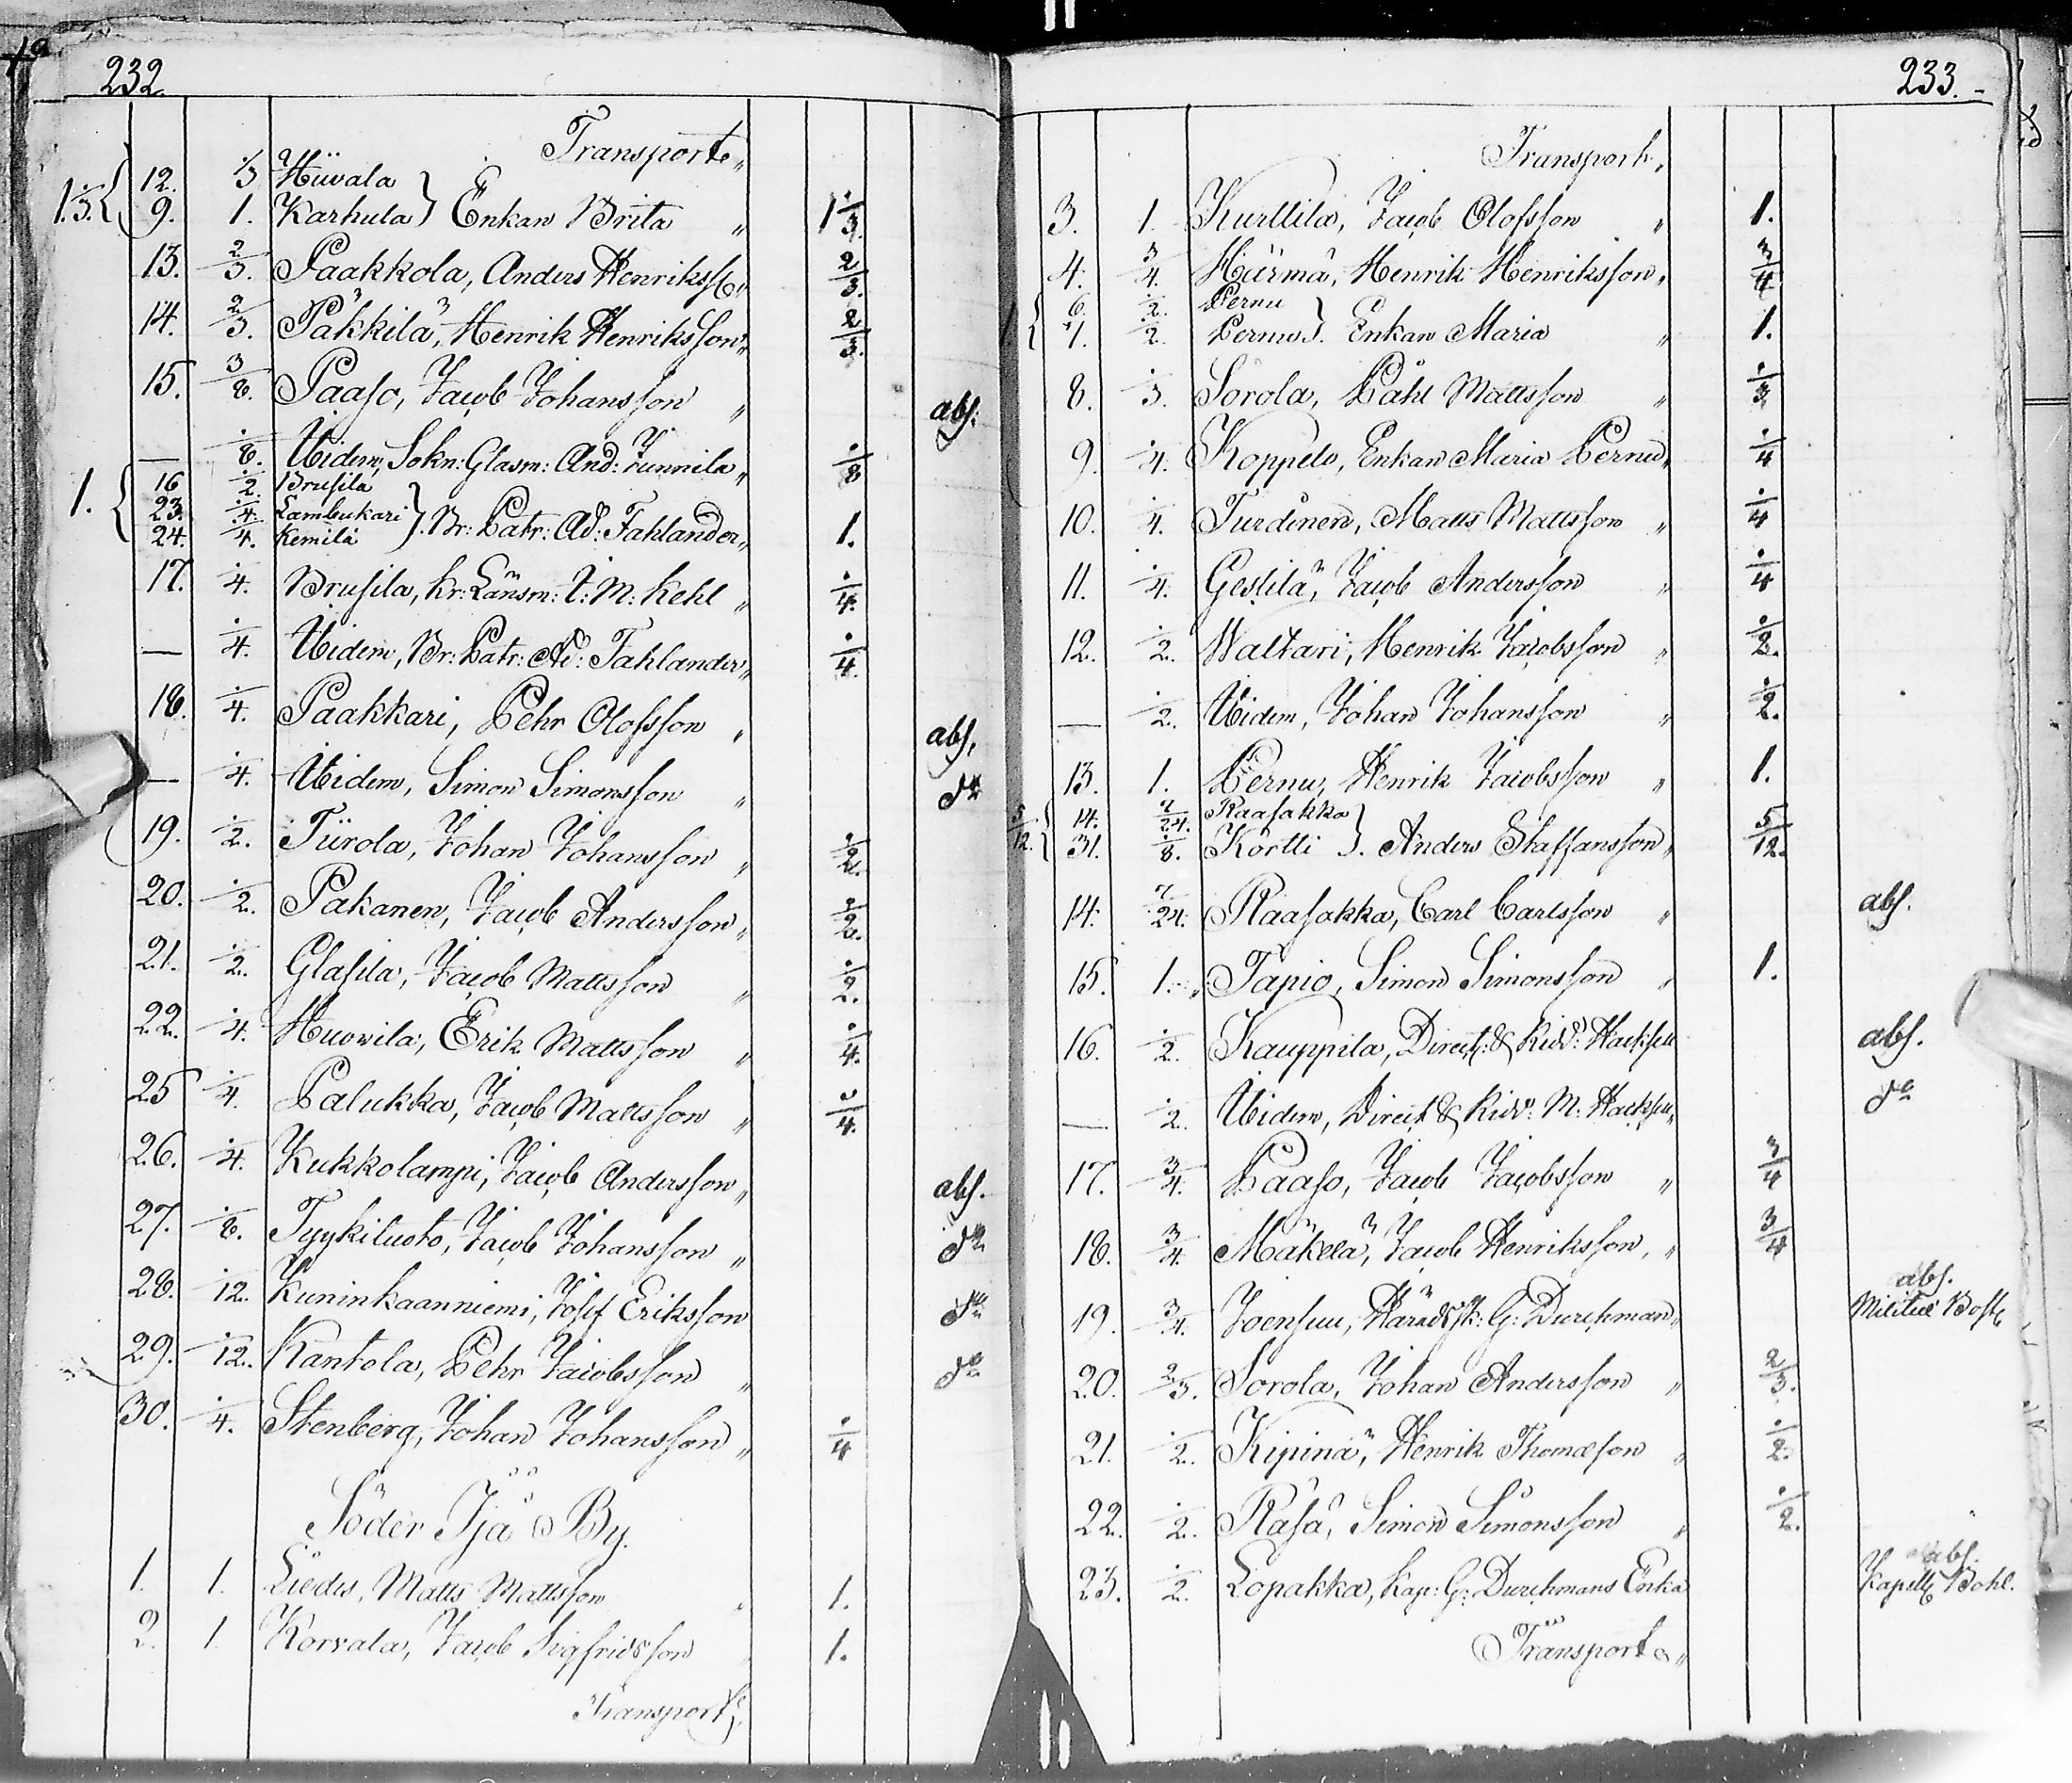 232.
Transport
12. 1/3 Hiivala
1 1/3. { 9. 1. Karhula } Enkan Brita " 1 1/3.
13. 2/3. Paakkola, Anders Henrikss. " 2/3.
14. 2/3. Päkkilä, Henrik Henriksson " 2/3.
15. 3/8. Paaso, Jacob Johansson " abs.
— 1/8. Ibidem, Sokn: Glasm: And: Junnila " 1/8
16 1/2. Brusila
1. { 23. 1/4. Lambukari } Br: Patr: Ad: Fahlander " 1.
24. 1/4. Kemilä
17. 1/4. Brusila, Kr: Länsm: I: M: Kehl " 1/4.
— 1/4. Ibidem, Br: Patr: Ad: Fahlander " 1/4.
18. 1/4. Paakkari, Pehr Olofsson " abs.
— 1/4. Ibidem, Simon Simonsson " do
19. 1/2. Tiirola, Johan Johansson " 1/2.
20. 1/2. Pakanen, Jacob Andersson " 1/2.
21. 1/2. Glasila, Jacob Mattsson " 1/2.
22. 1/4. Huovila, Erik Mattsson " 1/4.
25 1/4. Palukka, Jacob Mattsson " 1/4.
26. 1/4. Kukkolampi, Jacob Andersson " abs.
27. 1/8. Tyykiluoto, Jacob Johansson " do
28. 1/12. Kuninkaanniemi, Josef Eriksson do
29. 1/12. Kantola, Pehr Jacobsson " do
30. 1/4. Stenberg, Johan Johansson " 1/4
Söder Ijå By.
1. 1. Liedes, Matts Mattsson " 1.
2. 1. Korvala, Jacob Sigfridsson 1.
Transport
233.
Transport
3. 1. Kurttila, Jacob Olofsson " 1.
4. 3/4. Härmä, Henrik Henriksson " 3/4
6. 1/2. Pernu
1 { 7. 1/2. Pernu } Enkan Maria " 1.
8. 1/3. Sorola, Påhl Mattsson " 1/3
9. 1/4. Koppelo, Enkan Maria Pernu " 1/4
10. 1/4. Turdinen, Matts Mattsson " 1/4
11. 1/4. Gestilä, Jacob Andersson " 1/4
12. 1/2. Waltari, Henrik Jacobsson " 1/2.
— 1/2. Ibidem, Johan Johansson " 1/2.
13. 1. Pernu, Henrik Jacobsson " 1.
14. 7/24. Raasakka
5/12. { 31. 1/8. Kortti } Anders Staffansson " 5/12.
14. 7/24. Raasakka, Carl Carlsson " abs.
15. 1. Tapio, Simon Simonsson " 1.
16. 1/2. Kauppila, Direct: & Ridd: abs.
— 1/2. Ibidem, Direct & Ridd: M: do
17. 3/4. Paaso, Jacob Jacobsson " 3/4
18. 3/4. Mäkelä, Jacob Henriksson, " 3/4
19. 3/4. Joensuu, Häradssk: G: Durchman " abs. Militiæ Bost
20. 2/3. Sorola, Johan Andersson " 2/3.
21. 1/2. Kipinä, Henrik Thomæson " 1/2.
22. 1/2. Räsä, Simon Simonsson " 1/2.
23. 1/2. Lopakka, Kap: G: Durchmans Enka abs. Kapell Bohl.
Transport "